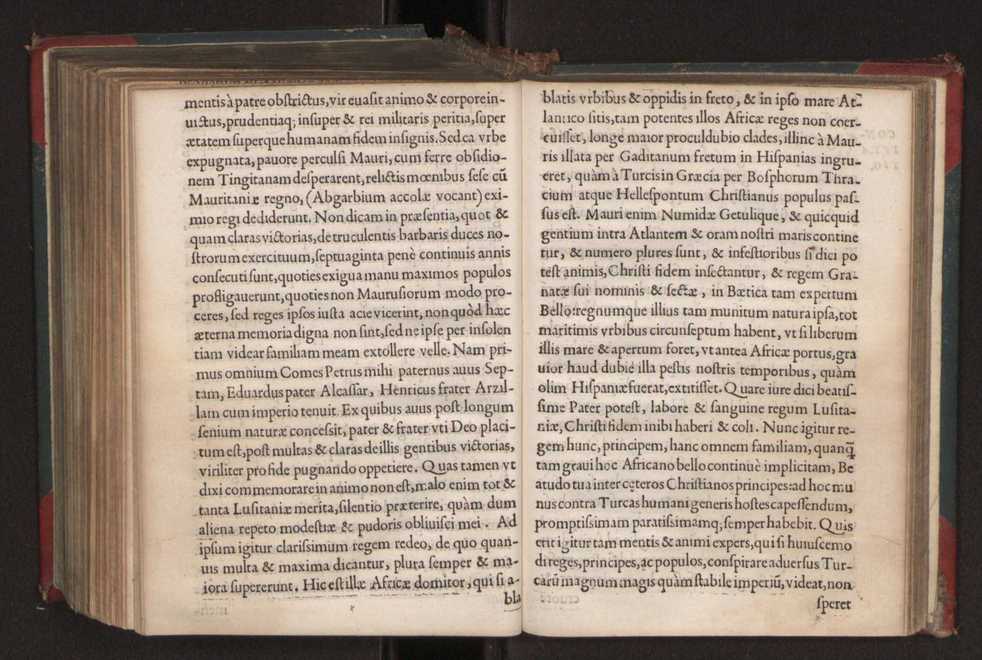 mentis à patre obstrictus, vir euasit animo & corpore in-
uictus, prudentiaq; insuper & rei militaris peritia, super
ætatem superque humanam fidem insignis. Sed ea vrbe
expugnata, pauore perculsi Mauri, cum ferre obsidio-
nem Tingitanam desperarent, relictis mœnibus sese cũ
Mauritaniæ regno, (Abgarbium accolæ vocant) exi-
mio regi dediderunt. Non dicam in præsentia, quot &
quam claras victorias, de truculentis barbaris duces no-
strorum exercituum, septuaginta penè continuis annis
consecuti sunt, quoties exigua manu maximos populos
profligauerunt, quoties non Maurusiorum modo pro-
ceres, sed reges ipsos iusta acie vicerint, non quòd hæc
æterna memoria digna non sint, sed ne ipse per insolen
tiam videar familiam meam extollere velle. Nam pri-
mus omnium Comes Petrus mihi paternus auus Sep-
tam, Eduardus pater Alcassar, Henricus frater Arzil-
lam cum imperio tenuit. Ex quibus auus post longum
senium naturæ concessit, pater & frater vti Deo placi-
tum est, post multas & claras de illis gentibus victorias,
viriliter pro fide pugnando oppetiere. Quas tamen vt
dixi commemorare in animo non est, malo enim tot &
tanta Lusitaniæ merita, silentio præterire, quàm dum
aliena repeto modestiæ & pudoris obliuisci mei. Ad
ipsum igitur clarissimum regem redeo, de quo quan-
uis multa & maxima dicantur, plura semper & ma-
iora supererunt. Hic est ille Africæ domitor, qui si a-
bla
blatis vrbibus & oppidis in freto, & in ipso mare At-
lantico sitis, tam potentes illos Africæ reges non coer-
cuisset, longe maior proculdubio clades, illinc à Mau-
ris illata per Gaditanum fretum in Hispanias ingru-
eret, quàm à Turcis in Græcia per Bosphorum Thra-
cium atque Hellespontum Christianus populus pas-
sus est. Mauri enim Numidæ Getulique, & quicquid
gentium intra Atlantem & oram nostri maris contine
tur, & numero plures sunt, & infestioribus si dici po
test animis, Christi fidem insectantur, & regem Gra-
natæ sui nominis & sectæ, in Bætica tam expertum
Bello: regnumque illius tam munitum natura ipsa, tot
maritimis vrbibus circunseptum habent, vt si liberum
illis mare & apertum foret, vt antea Africæ portus, gra
uior haud dubiè illa pestis nostris temporibus, quàm
olim Hispaniæ fuerat, extitisset. Quare iure dici beatis-
sime Pater potest, labore & sanguine regum Lusita-
niæ, Christi fidem inibi haberi & coli. Nunc igitur re-
gem hunc, principem, hanc omnem familiam, quanq̃
tam graui hoc Africano bello continuè implicitam, Be
atudo tua inter ceteros Christianos principes: ad hoc mu
nus contra Turcas humani generis hostes capessendum,
promptissimam paratissimamq; semper habebit. Quis
erit igitur tam mentis & animi expers, qui si huiuscemo
di reges, principes, ac populos, conspirare aduersus Tur-
carũ magnum magis quàm stabile imperiũ, videat, non
speret